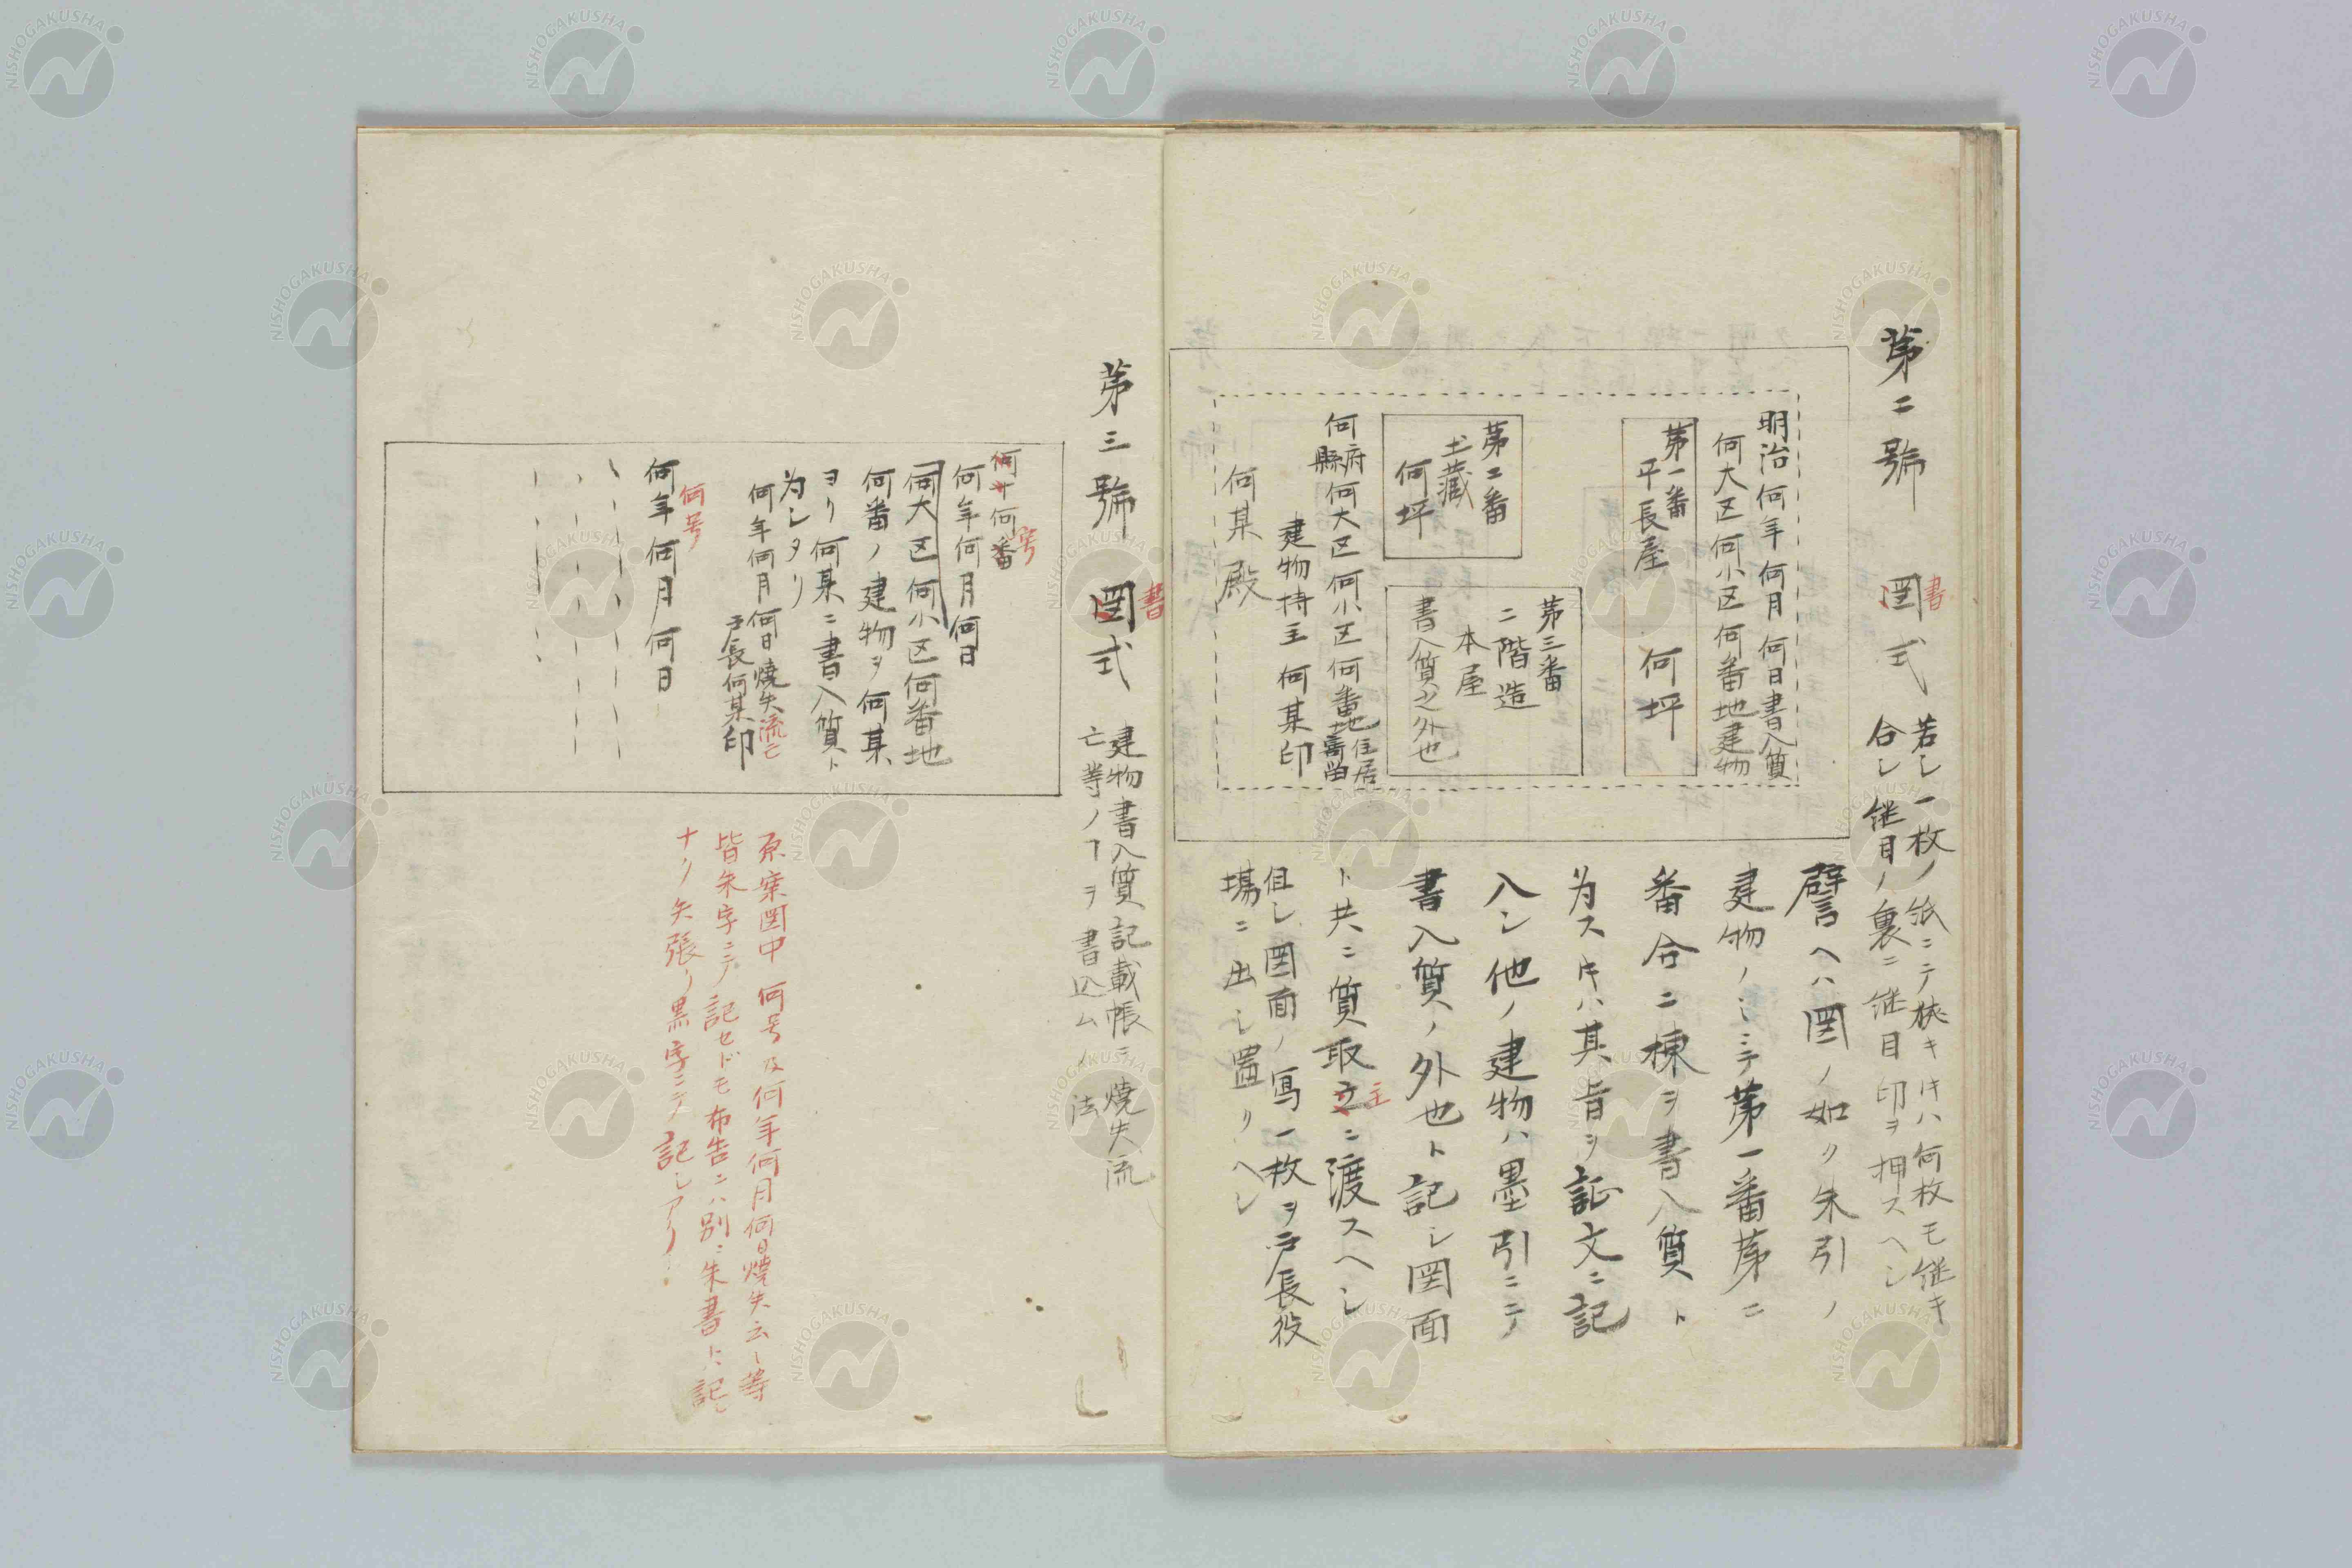 第二號 圖式 若シ一枚ノ紙ニテ狹キ𪜈ハ何枚モ継キ
書
合シ継目ノ裏ニ継目印ヲ押スヘシ
明治何年何月何日書入質
何大区何小区何番地建物
第一番
平長屋 何坪
第二番
土藏
何坪
第三番
二階造
本屋
書入質之外也
何府縣何大区何小区何番地住居寄留
建物持主 何某印
何某殿
譬ヘハ圖ノ如ク朱引ノ
建物ノミニテ第一番第二
番合ニ棟ヲ書入質ト
為スキハ其旨ヲ証文ニ記
入シ他ノ建物ハ墨引ニテ
書入質ノ外也ト記シ圖面
ト共ニ質取主ニ渡スヘシ
但シ圖面ノ寫一枚ヲ戸長役
場ニ出シ置クヘシ
第三號 圖式 建物書入質記載帳ニ燒失流
書
亡等ノヿヲ書込ム法
何十何番
号
何年何月何日
何大区何小区何番地
何番ノ建物ヲ何某
ヨリ何某ニ書入質ト
为シタリ
何年何月何日燒失流亡
戸長何某印
何号
何年何月何日
原案圖中何号及何年何月何日燒失云々等
皆朱字ニテ記セドモ布告ニハ別ニ朱書ト記シ
ナク矢張リ黒字ニテ記シアリ
NISHOGAKUSHA